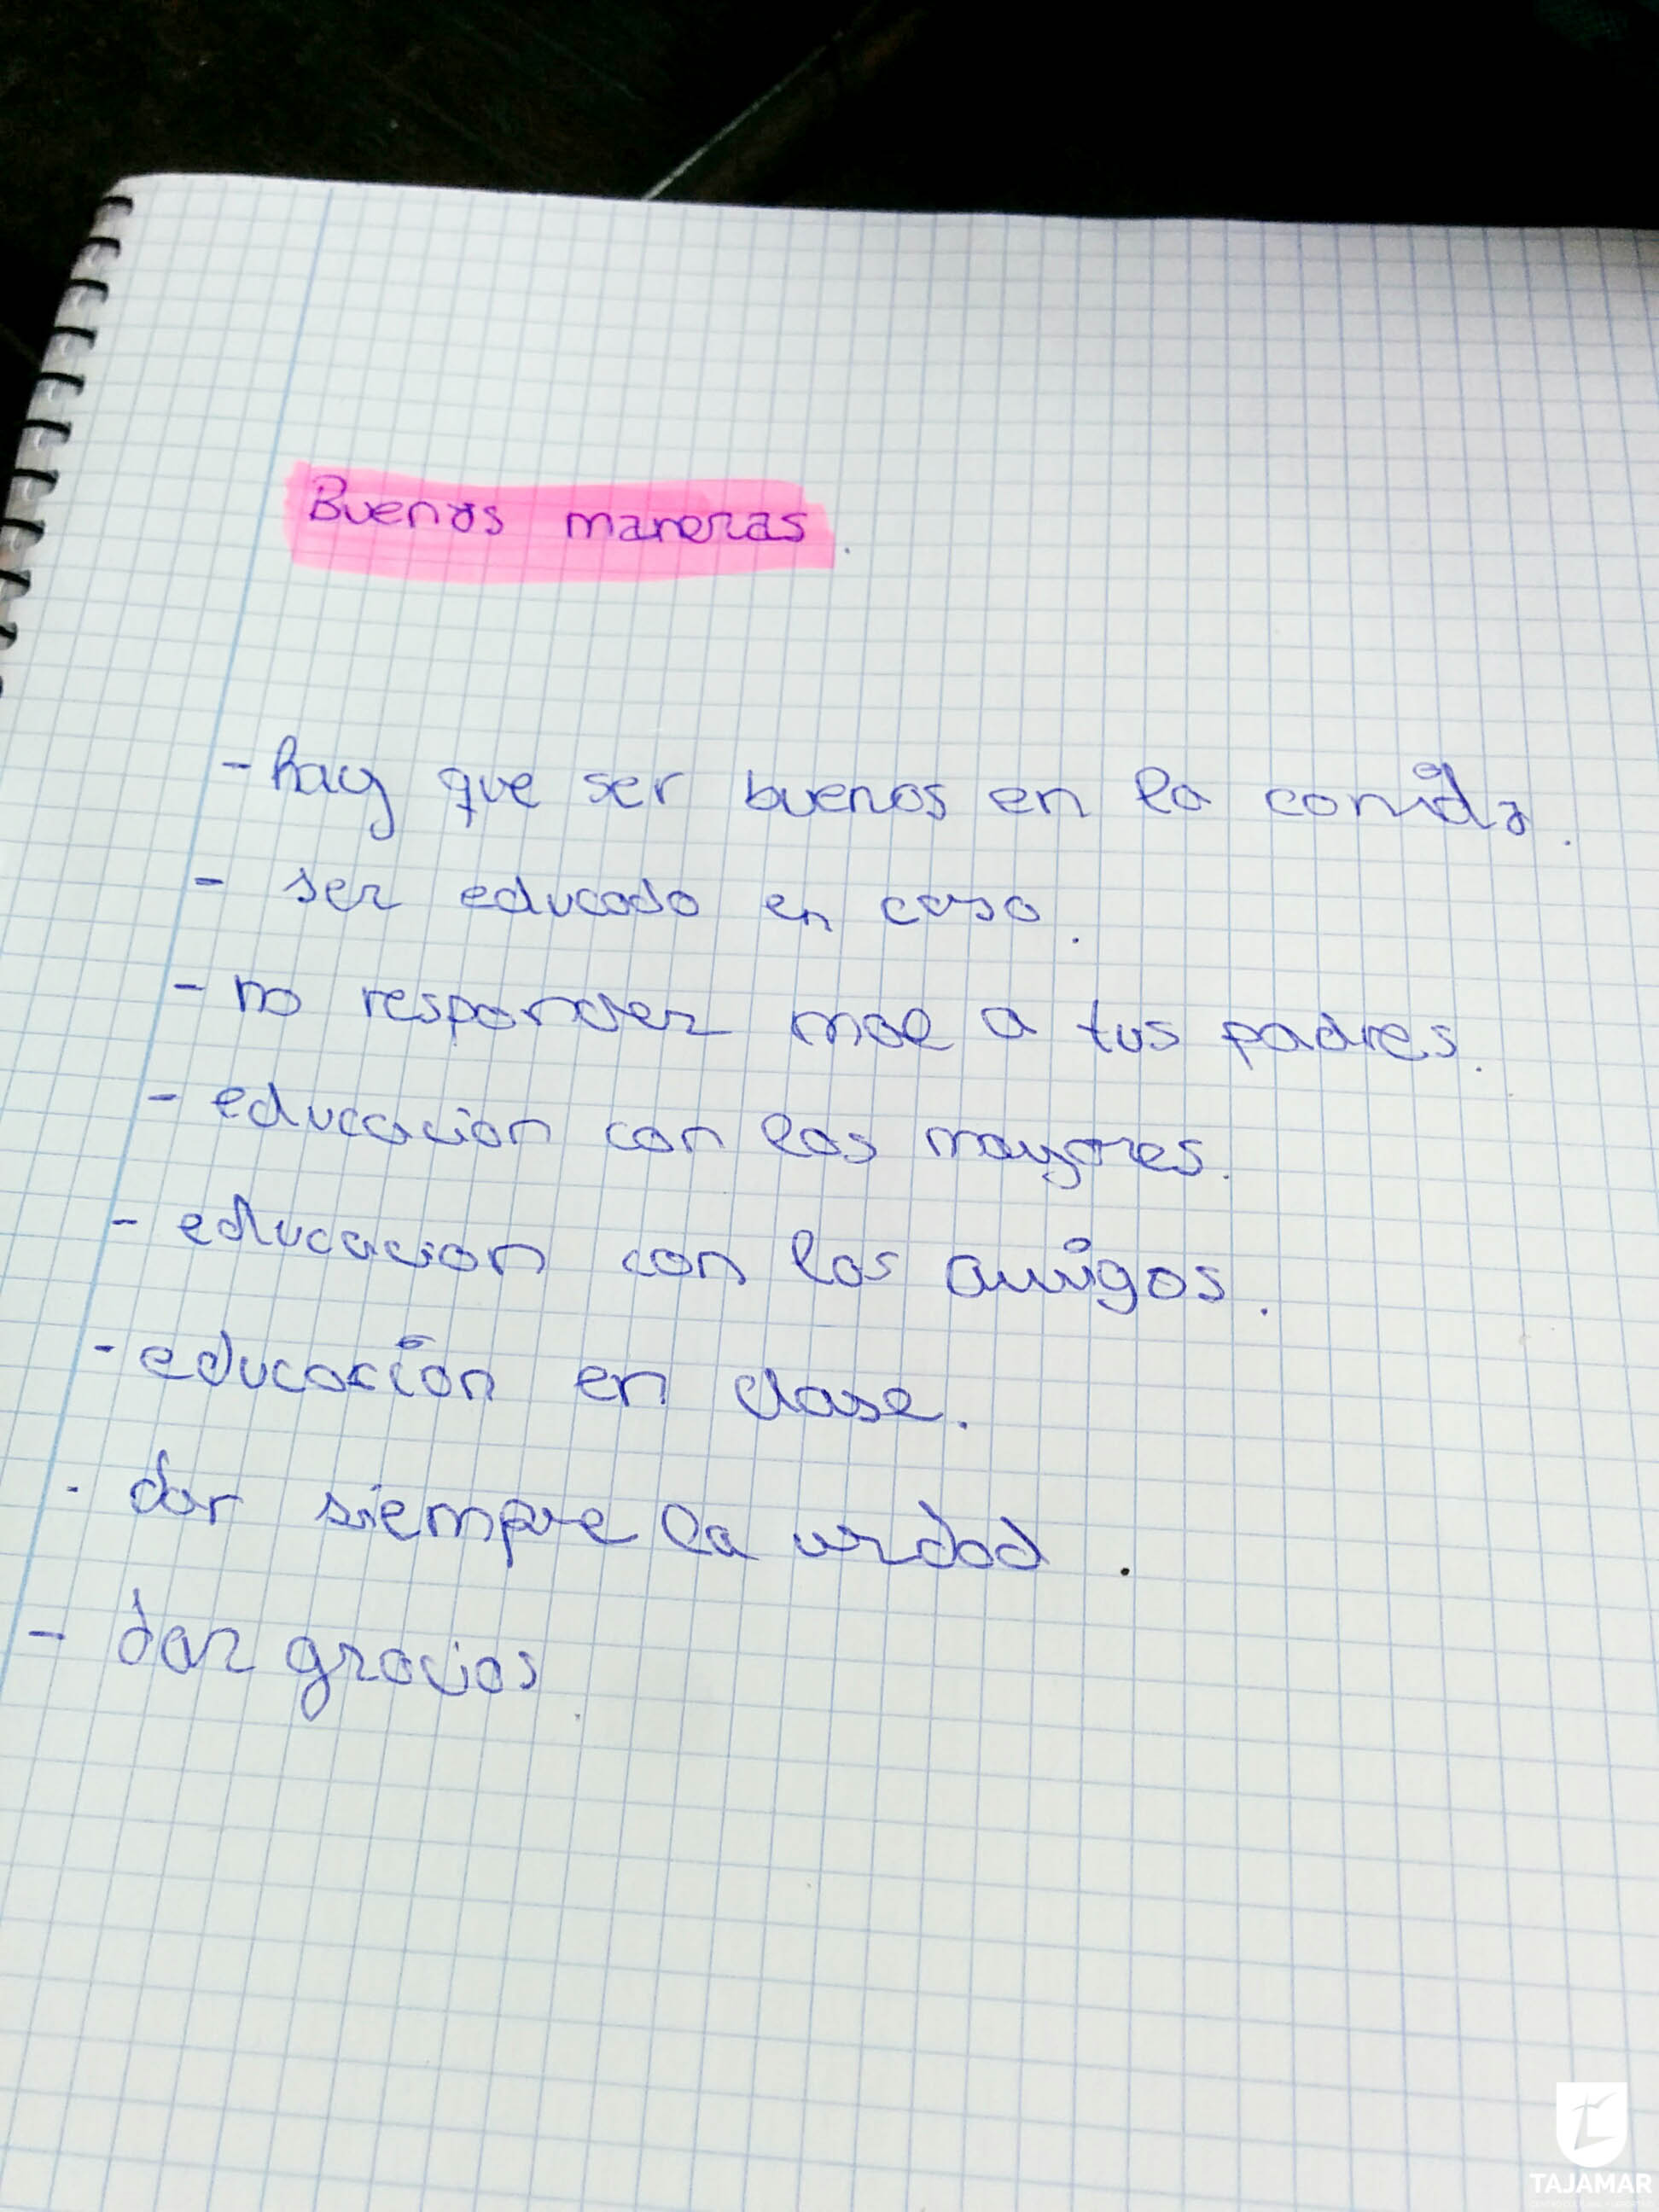 Buenas maneras.
- hay que ser buenos en la comida.
- ser educado en casa.
- no responder mal a tus padres.
- educacion con los mayores.
- educacion con los amigos.
- educación en clase.
- dar siempre la verdad.
- dar gracias
TAJAMAR